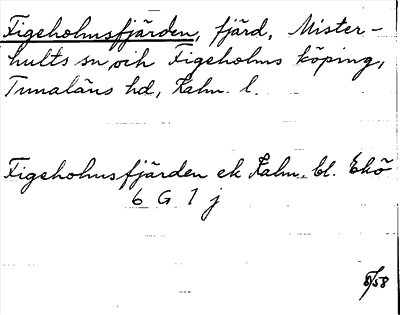 Figeholmsfjärden, fjärd, Mister-
hults sn, och Figeholms köping,
Tunaläns hd, Kalm. l.
Figeholmsfjärden ek Kalm. bl. Ekö
6 G 1 j
8/58